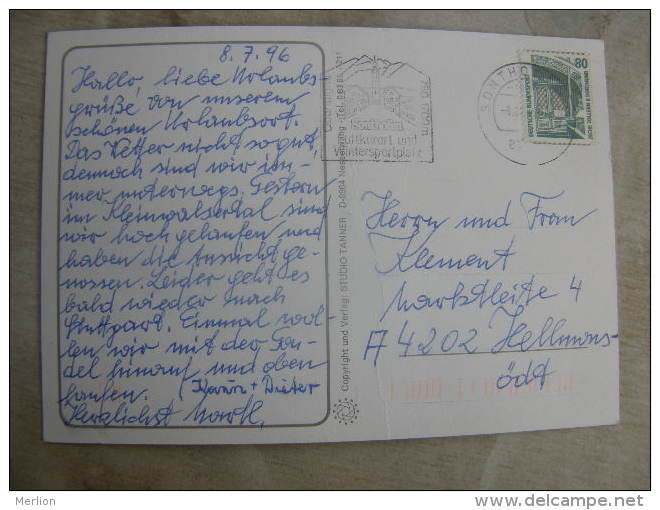 8.7.96
Hallo, liebe Urlaubs-
grüße von unserem
schönen Urlaubsort.
Das Wetter nicht so gut,
dennoch sind wir im-
mer unterwegs. Gestern
im Kleinwalsertal sind
wir hoch gelaufen und
haben die Aussicht ge-
nossen. Leider geht es
bald wieder nach
Stuttgart. Einmal wol-
len wir mit der Gon-
del hinauf und oben
laufen. Karin + Dieter
Herzlichst
Copyright und Verlag: STUDIO TANNER
Luftkurort und
Wintersportplatz
SONTHO
80
DEUTSCHE BUNDESPOST
Herrn und Frau
Klement
Marktleite 4
A 4202 Hellmons-
ödt
Merlion
www.delcampe.net